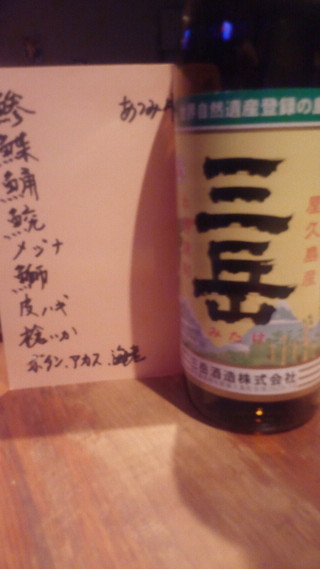 鯵
鰈
鯒
鯇
メジナ
鰤
皮ハギ
槍いか
ボタン.アカス.海老
あつみ
界自然遺産登録の島
三岳
屋久島産
みたけ
三岳酒造株式会社